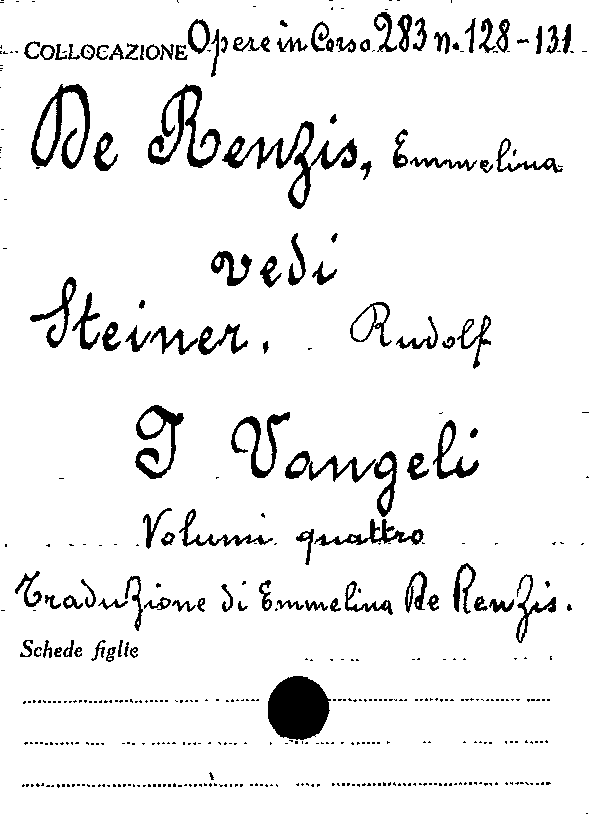 COLLOCAZIONE Opere in Corso 283 n. 128-131
De Renzis, Emmelina
vedi
Steiner. Rudolf
I Vangeli
Volumi quattro
Traduzione di Emmelina De Renzis.
Schede figlie